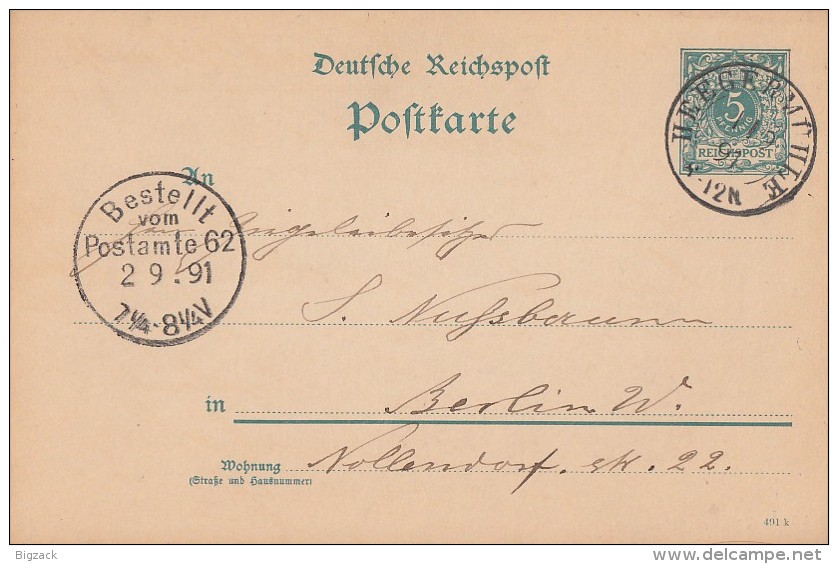 Deutsche Reichspost
Postkarte
5
PFENNIG
REICHSPOST
HEEGERMÜHLE
91
-12N
An
Bestellt
vom
Postamte 62
2 9 . 91
7¼-8¼V
Herrn Ziegeleibesitzer
S. Nußbaum
in Berlin W.
Wohnung Nollendorf. str. 22.
(Straße und Hausnummer)
491 k
Bigzack
delcampe.net